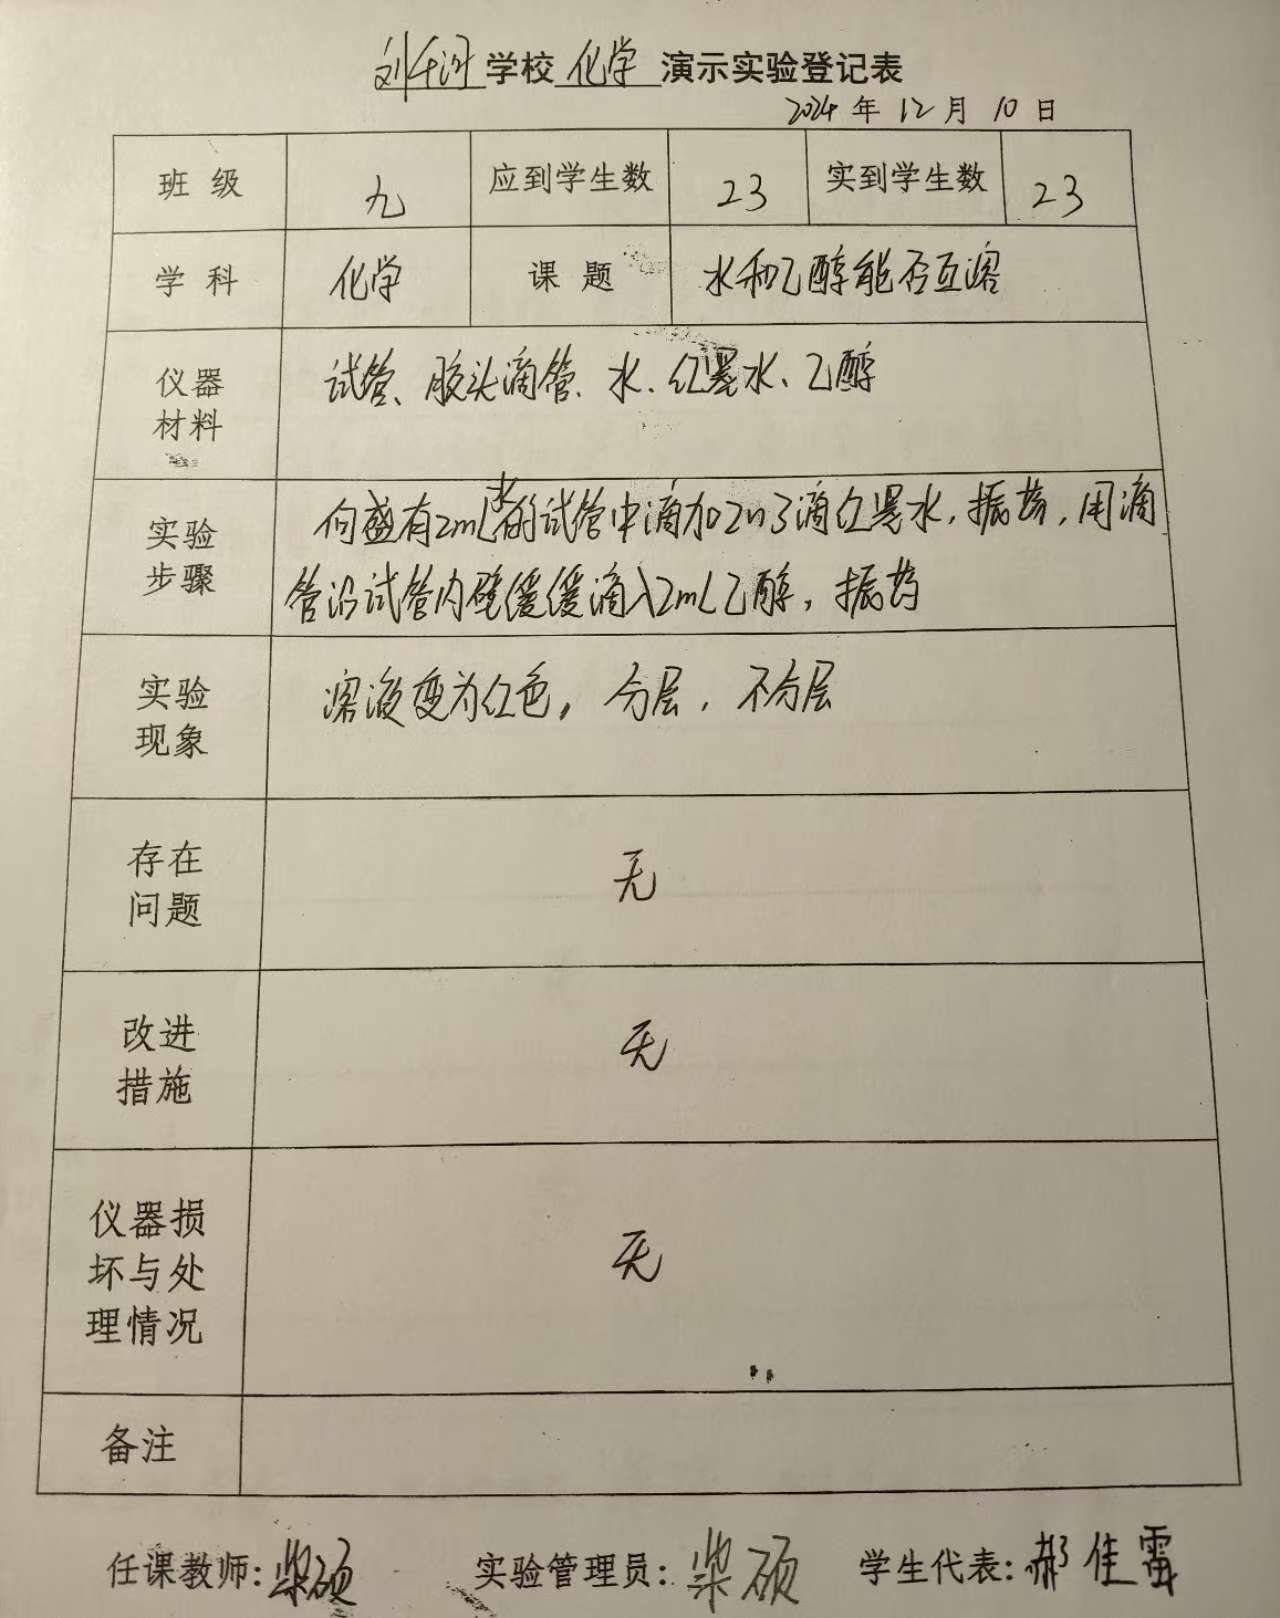 学校 化学 演示实验登记表
2024 年 12 月 10 日
班 级 九 应到学生数 23 实到学生数 23
学 科 化学 课 题 水和乙醇能否互溶
仪器
材料
试管、胶头滴管、水、红墨水、乙醇
实验
步骤
向盛有2mL水的试管中滴加2~3滴红墨水,振荡,用滴
管沿试管内壁缓缓滴入2mL乙醇,振荡
实验
现象
溶液变为红色,分层,不分层
存在
问题
无
改进
措施
无
仪器损
坏与处
理情况
无
备注
任课教师:柴硕 实验管理员:柴硕 学生代表:郝佳